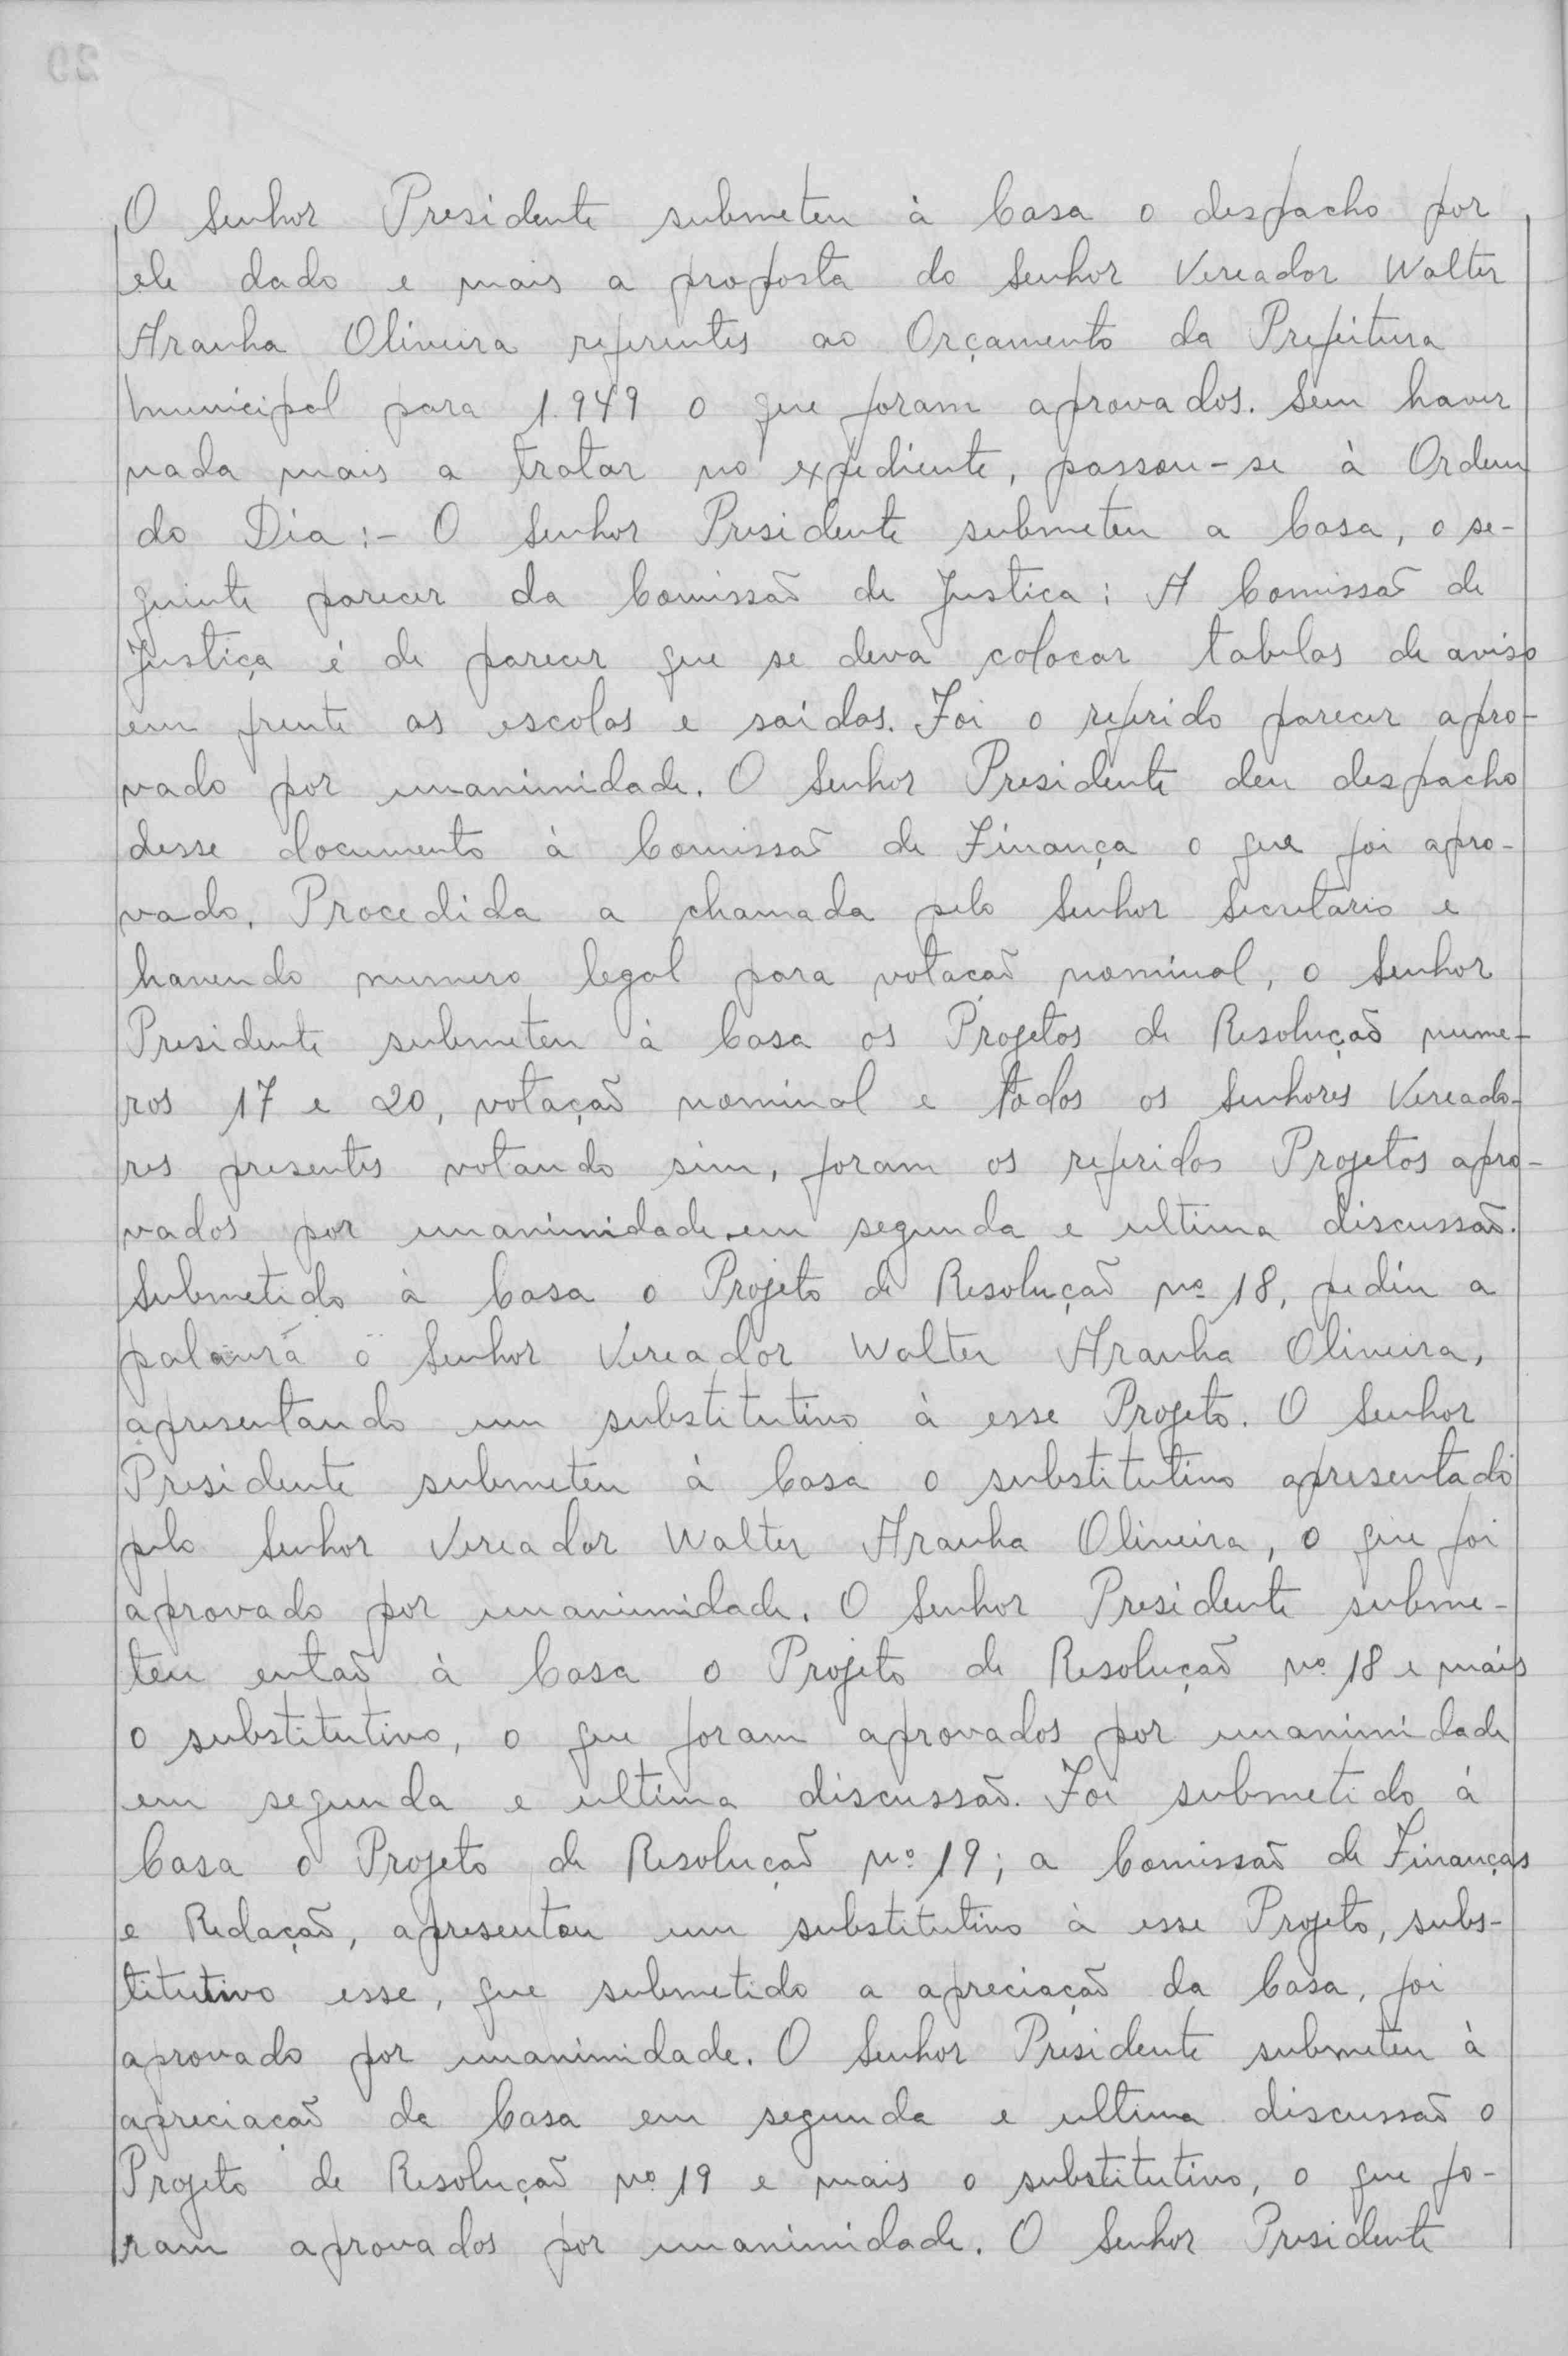 O Senhor Presidente submeteu à Casa o despacho por
ele dado e mais a proposta do Senhor Vereador Walter
Aranha Oliveira referentes ao Orçamento da Prefeitura
Municipal para 1.949 o que foram aprovados. Sem haver
nada mais a tratar no expediente, passou-se à Ordem
do Dia:- O Senhor Presidente submeteu a Casa, o se-
guinte parecer da Comissão de Justiça: A Comissão de
Justiça é de parecer que se deva colocar tabelas de aviso
em frente as escolas e saídas. Foi o referido parecer apro-
vado por unanimidade. O Senhor Presidente deu despacho
desse documento à Comissão de Finança o que foi apro-
vado. Procedida a chamada pelo Senhor Secretario e
havendo numero legal para votação nominal, o Senhor
Presidente submeteu à Casa os Projetos de Resolução nume-
ros 17 e 20, votação nominal e todos os Senhores Vereado-
res presentes votando sim, foram os referidos Projetos apro-
vados por unanimidade em segunda e ultima discussão.
Submetido à Casa o Projeto de Resolução nº 18, pediu a
palavra o Senhor Vereador Walter Aranha Oliveira,
apresentando um substitutivo à esse Projeto. O Senhor
Presidente submeteu à Casa o substitutivo apresentado
pelo Senhor Vereador Walter Aranha Oliveira, o que foi
aprovado por unanimidade. O Senhor Presidente subme-
teu então à Casa o Projeto de Resolução nº 18 e mais
o substitutivo, o que foram aprovados por unanimidade
em segunda e ultima discussão. Foi submetido à
Casa o Projeto de Resolução nº 19; a Comissão de Finanças
e Redação, apresentou um substitutivo à esse Projeto, subs-
titutivo esse, que submetido a apreciação da Casa, foi
aprovado por unanimidade. O Senhor Presidente submeteu à
apreciação da Casa em segunda e ultima discussão o
Projeto de Resolução nº 19 e mais o substitutivo, o que fo-
ram aprovados por unanimidade. O Senhor Presidente